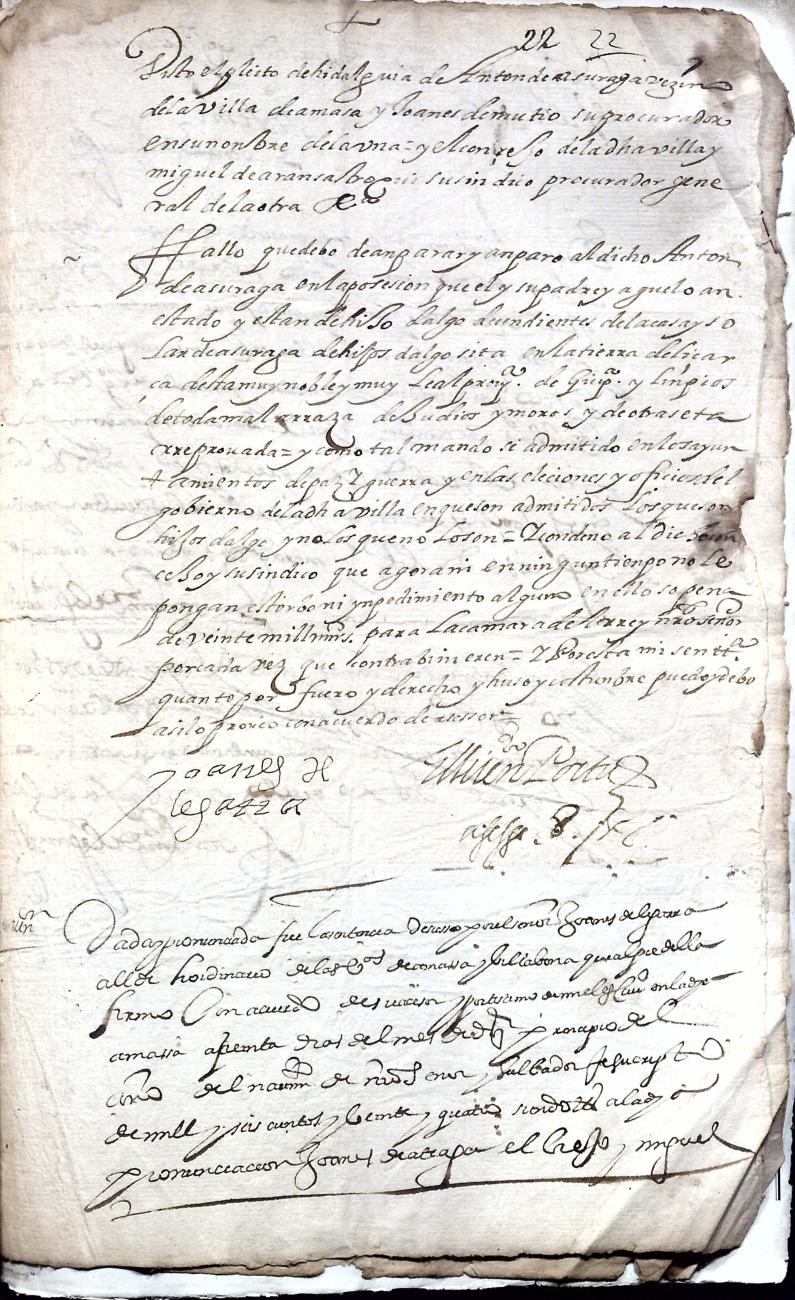 22 22
Visto el pleito de hidalguia de Anton de asuraga vezin
de la villa de amasa y Joanes de mutio su procurador
en su nonbre de la vna = y el concejo de la dha villa y
miguel de aransastroqui su sindico procurador gene
ral de la otra &a
Ffallo que debo de anparar y anparo al dicho Anton
de asuraga en la posesion que el y su padre y aguelo an
estado y estan de hijo dalgo decendientes de la casa y so
lar de asuraga de hijos dalgo sita en la tierra de licar
ca desta muy noble y muy Leal proa. de Guipa. y linpios
de toda mal arraza de Judios y moros y de otra seta
rreprovada = y como tal mando si admitido en los ayun
tamientos de paz y guerra y en las eleciones y oficios del
gobierno de la dha villa en que son admitidos Los que son
hijos dalgo y no los que no lo son = Y condeno al dicho con
cejo y su sindico que agora ni en ningun tienpo no le
pongan estorbo ni ynpedimiento alguno en ello so pena
de veinte mill mrs. para La camara del rrey nro señor
por cada vez que contrabinieren = Y Por esta mi senta.
quanto por fuero y derecho y huso y costunbre puedo y debo
asi lo pronco con acuerdo de asesor =
Joanes de
legarra
Dada y pronunciada fue la sentencia de suso por el señor Joanes de legarra
allde hordinario de las vas de amassa y billabona que al pie della
firmo Con acuerdo de su asesor y por testimo de mi el escriuo en la dha
amassa a treinta dias del mes de
año del nacimio de nro Señor y salbador Jesucripto
de mill y seis cientos y beinte y quatro siendo tts a la dha
pronunciacion Joanes de atrapa el biejo y miguel